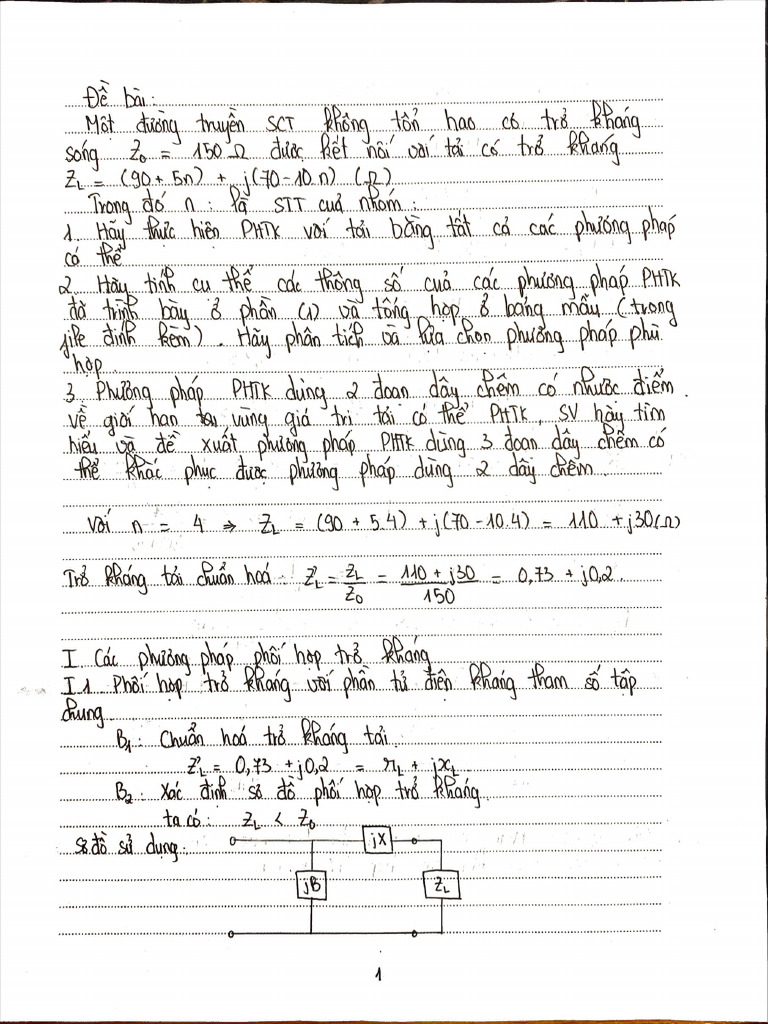 Đề bài:
Một đường truyền SCT không tổn hao có trở kháng
sóng Z0 = 150 Ω được kết nối với tải có trở kháng
ZL = (90 + 5n) + j(70 - 10.n) (Ω)
Trong đó n : là STT của nhóm :
1. Hãy thực hiện PHTK với tải bằng tất cả các phương pháp
có thể
2. Hãy tính cụ thể các thông số của các phương pháp PHTK
đã trình bày ở phần (1) và tổng hợp ở bảng mẫu (trong
file đính kèm). Hãy phân tích và lựa chọn phương pháp phù
hợp.
3. Phương pháp PHTK dùng 2 đoạn dây chêm có nhược điểm
về giới hạn vùng giá trị tải có thể PHTK, SV hãy tìm
hiểu và đề xuất phương pháp PHTK dùng 3 đoạn dây chêm có
thể khắc phục được phương pháp dùng 2 dây chêm.
Với n = 4 ⇒ ZL = (90 + 5.4) + j(70 - 10.4) = 110 + j30(Ω)
Trở kháng tải chuẩn hoá : Z'L = ZL/Z0 = (110 + j30)/150 = 0,73 + j0,2.
I. Các phương pháp phối hợp trở kháng
I.1 Phối hợp trở kháng với phần tử điện kháng tham số tập
chung
B1: Chuẩn hoá trở kháng tải.
Z'L = 0,73 + j0,2 = rL + jxL
B2: Xác định sơ đồ phối hợp trở kháng.
ta có: ZL < Z0
Sơ đồ sử dụng:
jX
jB
ZL
1